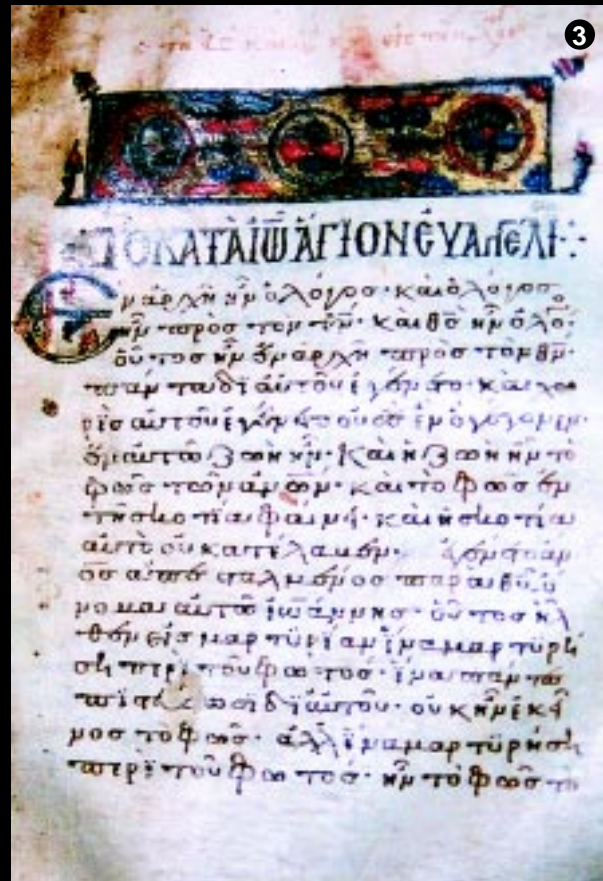 3
ΤΟ ΚΑΤΑ ΙΩ ἍΓΙΟΝ ἐΥΑΓΓΕΛΙ
Ἐν ἀρχῆ ἦν ὁ λόγος· καὶ ὁ λόγος
ἦν πρὸς τὸν θν· καὶ θς ἦν ὁ λό
οὗτος ἦν ἐν ἀρχῆ πρὸς τὸν θν·
πάντα δι αὐτοῦ ἐγένετο· καὶ χω
ρὶς αὐτοῦ ἐγένετο οὐδὲ ἓν ὃ γέγονεν·
ἐν αὐτῶ ζωὴ ἦν· καὶ ἡ ζωὴ ἦν τὸ
φῶς τῶν ανων· καὶ τὸ φῶς ἐν
τῆ σκοτία φαίνει· καὶ ἡ σκοτία
αὐτὸ οὐ κατέλαβεν· ἐγένετο αν
ος ἀπεσταλμένος παρα θυ ὄ
νομα αὐτῶ ἰωάννης· οὗτος ἦλ
θεν εἰς μαρτυρίαν ἵνα μαρτυρή
ση περὶ τοῦ φωτός· ἵνα πάντες
δι αὐτοῦ· οὐκ ἦν ἐκεῖ
νος τὸ φῶς· ἀλλ ἵνα μαρτυρήση
περὶ τοῦ φωτός· ἦν τὸ φῶς τὸ